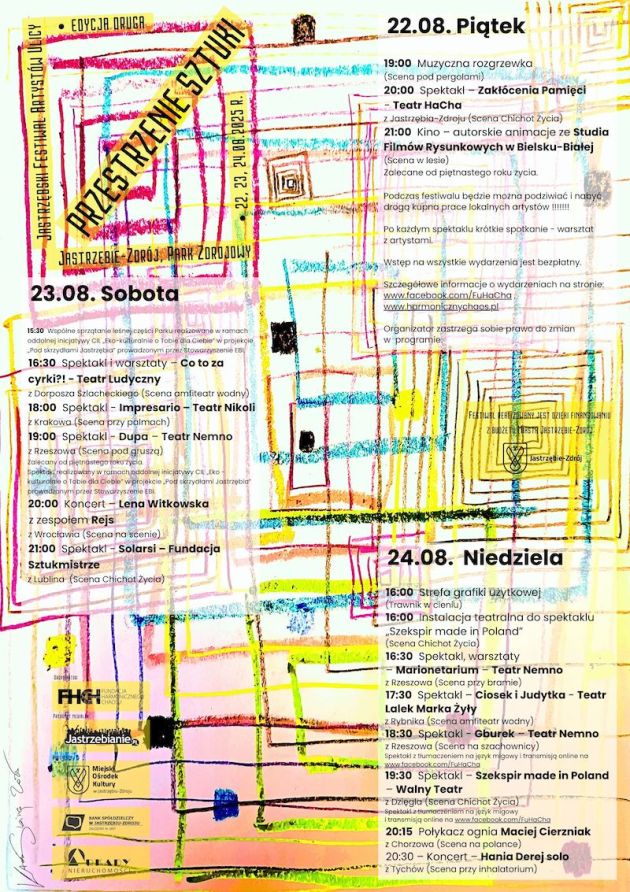 • EDYCJA DRUGA •
JASTRZĘBSKI FESTIWAL ARTYSTÓW ULICY
PRZESTRZENIE SZTUKI
22, 23, 24.08.2025 R.
JASTRZĘBIE-ZDRÓJ, PARK ZDROJOWY
22.08. Piątek
19:00 Muzyczna rozgrzewka
(Scena pod pergolami)
20:00 Spektakl – Zakłócenia Pamięci
- Teatr HaCha
z Jastrzębia-Zdroju (Scena Chichot Życia)
21:00 Kino – autorskie animacje ze Studia
Filmów Rysunkowych w Bielsku-Białej
(Scena w lesie)
Zalecane od piętnastego roku życia.
Podczas festiwalu będzie można podziwiać i nabyć
drogą kupna prace lokalnych artystów !!!!!!!
Po każdym spektaklu krótkie spotkanie - warsztat
z artystami.
Wstęp na wszystkie wydarzenia jest bezpłatny.
Szczegółowe informacje o wydarzeniach na stronie:
www.facebook.com/FuHaCha ;
www.harmonicznychaos.pl
Organizator zastrzega sobie prawo do zmian
w programie.
23.08. Sobota
15:30 Wspólne sprzątanie leśnej części Parku realizowane w ramach
oddolnej inicjatywy CIL „Eko-kulturalnie o Tobie dla Ciebie" w projekcie
„Pod skrzydłami Jastrzębia" prowadzonym przez Stowarzyszenie EBI.
16:30 Spektakl i warsztaty – Co to za
cyrki?! - Teatr Ludyczny
z Dorposza Szlacheckiego (Scena amfiteatr wodny)
18:00 Spektakl - Impresario – Teatr Nikoli
z Krakowa (Scena przy palmach)
19:00 Spektakl - Dupa – Teatr Nemno
z Rzeszowa (Scena pod gruszą)
Zalecany od piętnastego roku życia
Spektakl realizowany w ramach oddolnej inicjatywy CIL „Eko -
kulturalnie o Tobie dla Ciebie" w projekcie „Pod skrzydłami Jastrzębia"
prowadzonym przez Stowarzyszenie EBI.
20:00 Koncert – Lena Witkowska
z zespołem Rejs
z Wrocławia (Scena na scenie)
21:00 Spektakl - Solarsi – Fundacja
Sztukmistrze
z Lublina (Scena Chichot Życia)
FESTIWAL REALIZOWANY JEST DZIĘKI FINANSOWANIU
Z BUDŻETU MIASTA JASTRZĘBIE-ZDRÓJ
Jastrzębie-Zdrój
24.08. Niedziela
16:00 Strefa grafiki użytkowej
(Trawnik w cieniu)
16:00 Instalacja teatralna do spektaklu
„Szekspir made in Poland"
(Scena Chichot Życia)
16:30 Spektakl, warsztaty
– Marionetarium – Teatr Nemno
z Rzeszowa (Scena przy bramie)
17:30 Spektakl – Ciosek i Judytka - Teatr
Lalek Marka Żyły
z Rybnika (Scena amfiteatr wodny)
18:30 Spektakl – Gburek – Teatr Nemno
z Rzeszowa (Scena na szachownicy)
Spektakl z tłumaczeniem na język migowy i transmisją online na
www.facebook.com/FuHaCha
19:30 Spektakl – Szekspir made in Poland
– Walny Teatr
z Dzięgla (Scena Chichot Życia)
Spektakl z tłumaczeniem na język migowy
i transmisją online na www.facebook.com/FuHaCha
20:15 Połykacz ognia Maciej Cierzniak
z Chorzowa (Scena na polance)
20:30 – Koncert – Hania Derej solo
z Tychów (Scena przy inhalatorium)
Organizator:
FHCH FUNDACJA
HARMONICZNEGO
CHAOSU
Jastrzębianie.PL
Miejski
Ośrodek
Kultury
w Jastrzębiu-Zdroju
BANK SPÓŁDZIELCZY
W JASTRZĘBIU-ZDROJU
NIERUCHOMOŚCI